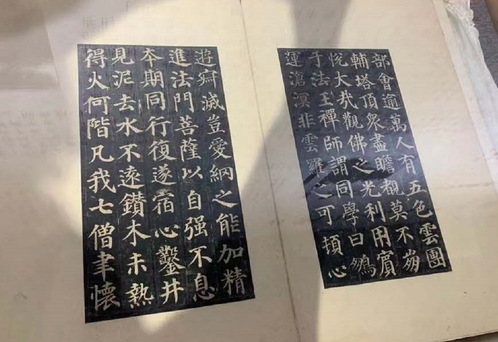 部會逾萬人有五色雲團
輔塔頂衆盡瞻覩莫不崩
悅大哉觀佛之光利用賓
于法王禪師謂同學曰鵬
運滄溟非雲羅之可頓心
遊寂滅豈愛網之能加精
進法門菩薩以自强不息
本期同行復遂宿心鑿井
見泥去水不遠鑽木未熱
得火何階凡我七僧聿懷